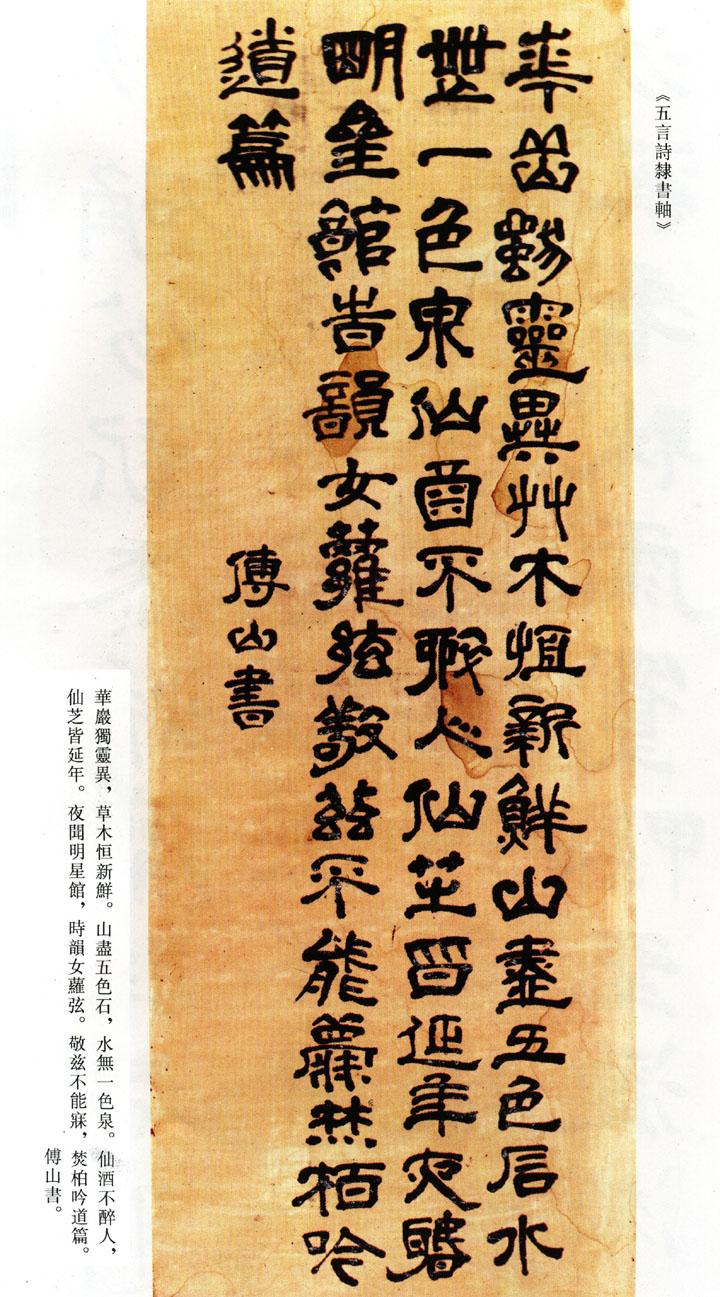 《五言詩隸書軸》
華嵒獨靈異艸木恒新鮮山盡五色石水
無一色泉仙酒不醉人仙芝皆延年夜聞
明星館時韻女蘿弦敬兹不能寐焚柏吟
道篇
傅山書
華巖獨靈異，草木恒新鮮。山盡五色石，水無一色泉。仙酒不醉人，
仙芝皆延年。夜聞明星館，時韻女蘿弦。敬兹不能寐，焚柏吟道篇。
傅山書。